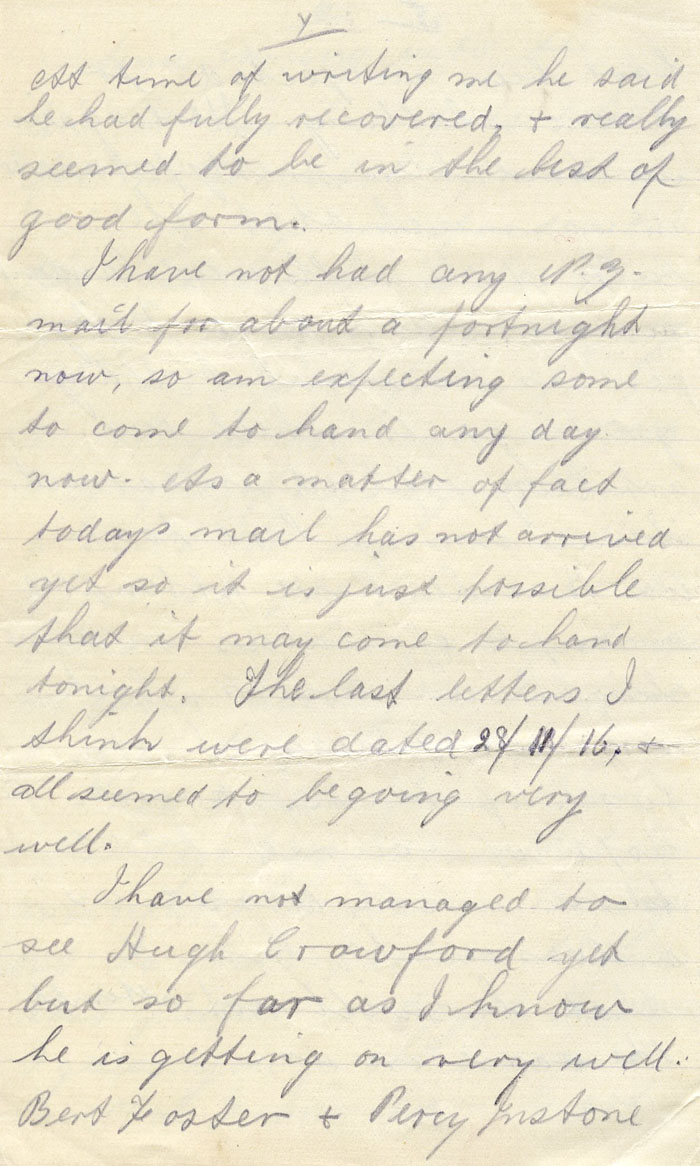 At time of writing me he said
he had fully recovered, + really
seemed to be in the best of
good form.
I have not had any N.Z.
mail for about a fortnight
now, so am expecting some
to come to hand any day
now. As a matter of fact
todays mail has not arrived
yet so it is just possible
that it may come to hand
tonight. The last letters I
think were dated 28/11/16, +
all seemed to be going very
well.
I have not managed to
see Hugh Crawford yet
but so far as I know
he is getting on very well.
Bert Foster + Percy Instone